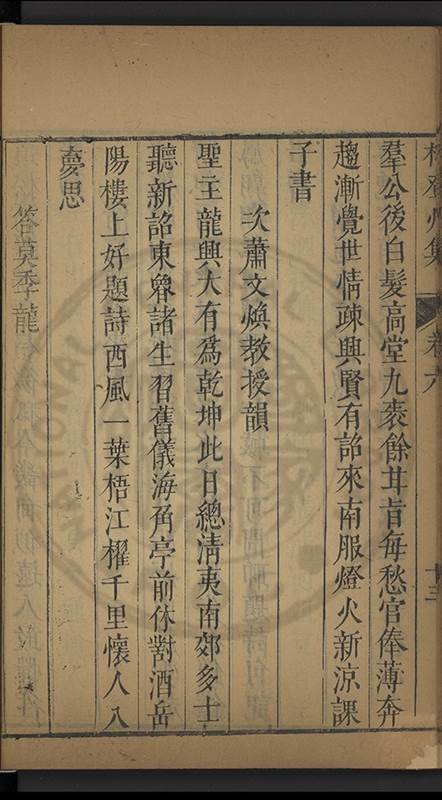 集 卷六
羣公後白髮高堂九袠餘甘旨每愁官俸薄奔
趨漸覺世情疎興賢有詔來南服燈火新涼課
子書
次蕭文煥教授韻
聖主龍興大有爲乾坤此日總淸夷南郊多士
聽新詔東魯諸生習舊儀海角亭前休對酒岳
陽樓上好題詩西風一葉梧江櫂千里懷人入
夢思
答莫季龍